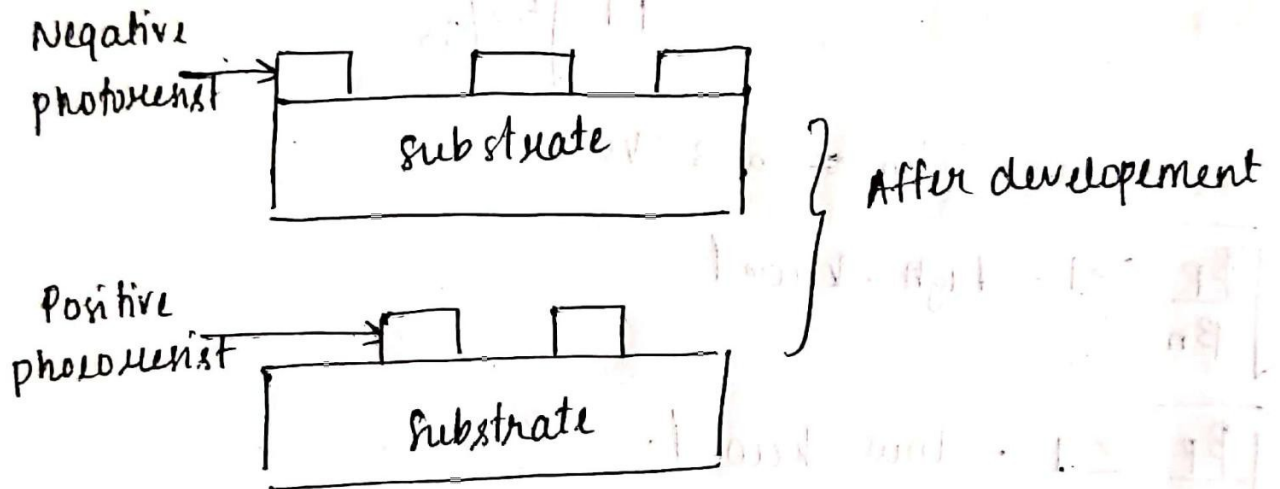 Negative
photoresist
substrate
After developement
Positive
photoresist
Substrate